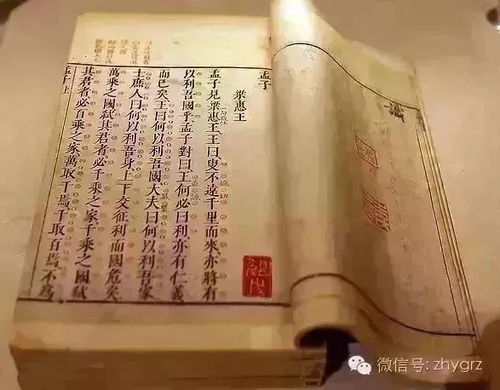 識
孟子
梁惠王
孟子見梁惠王王曰叟不遠千里而來亦將有
以利吾國乎孟子對曰王何必曰利亦有仁義
而已矣王曰何以利吾國大夫曰何以利吾家
士庶人曰何以利吾身上下交征利而國危矣
萬乘之國弒其君者必千乘之家千乘之國弒
其君者必百乘之家萬取千焉千取百焉不為
孟子上
微信号: zhygrz